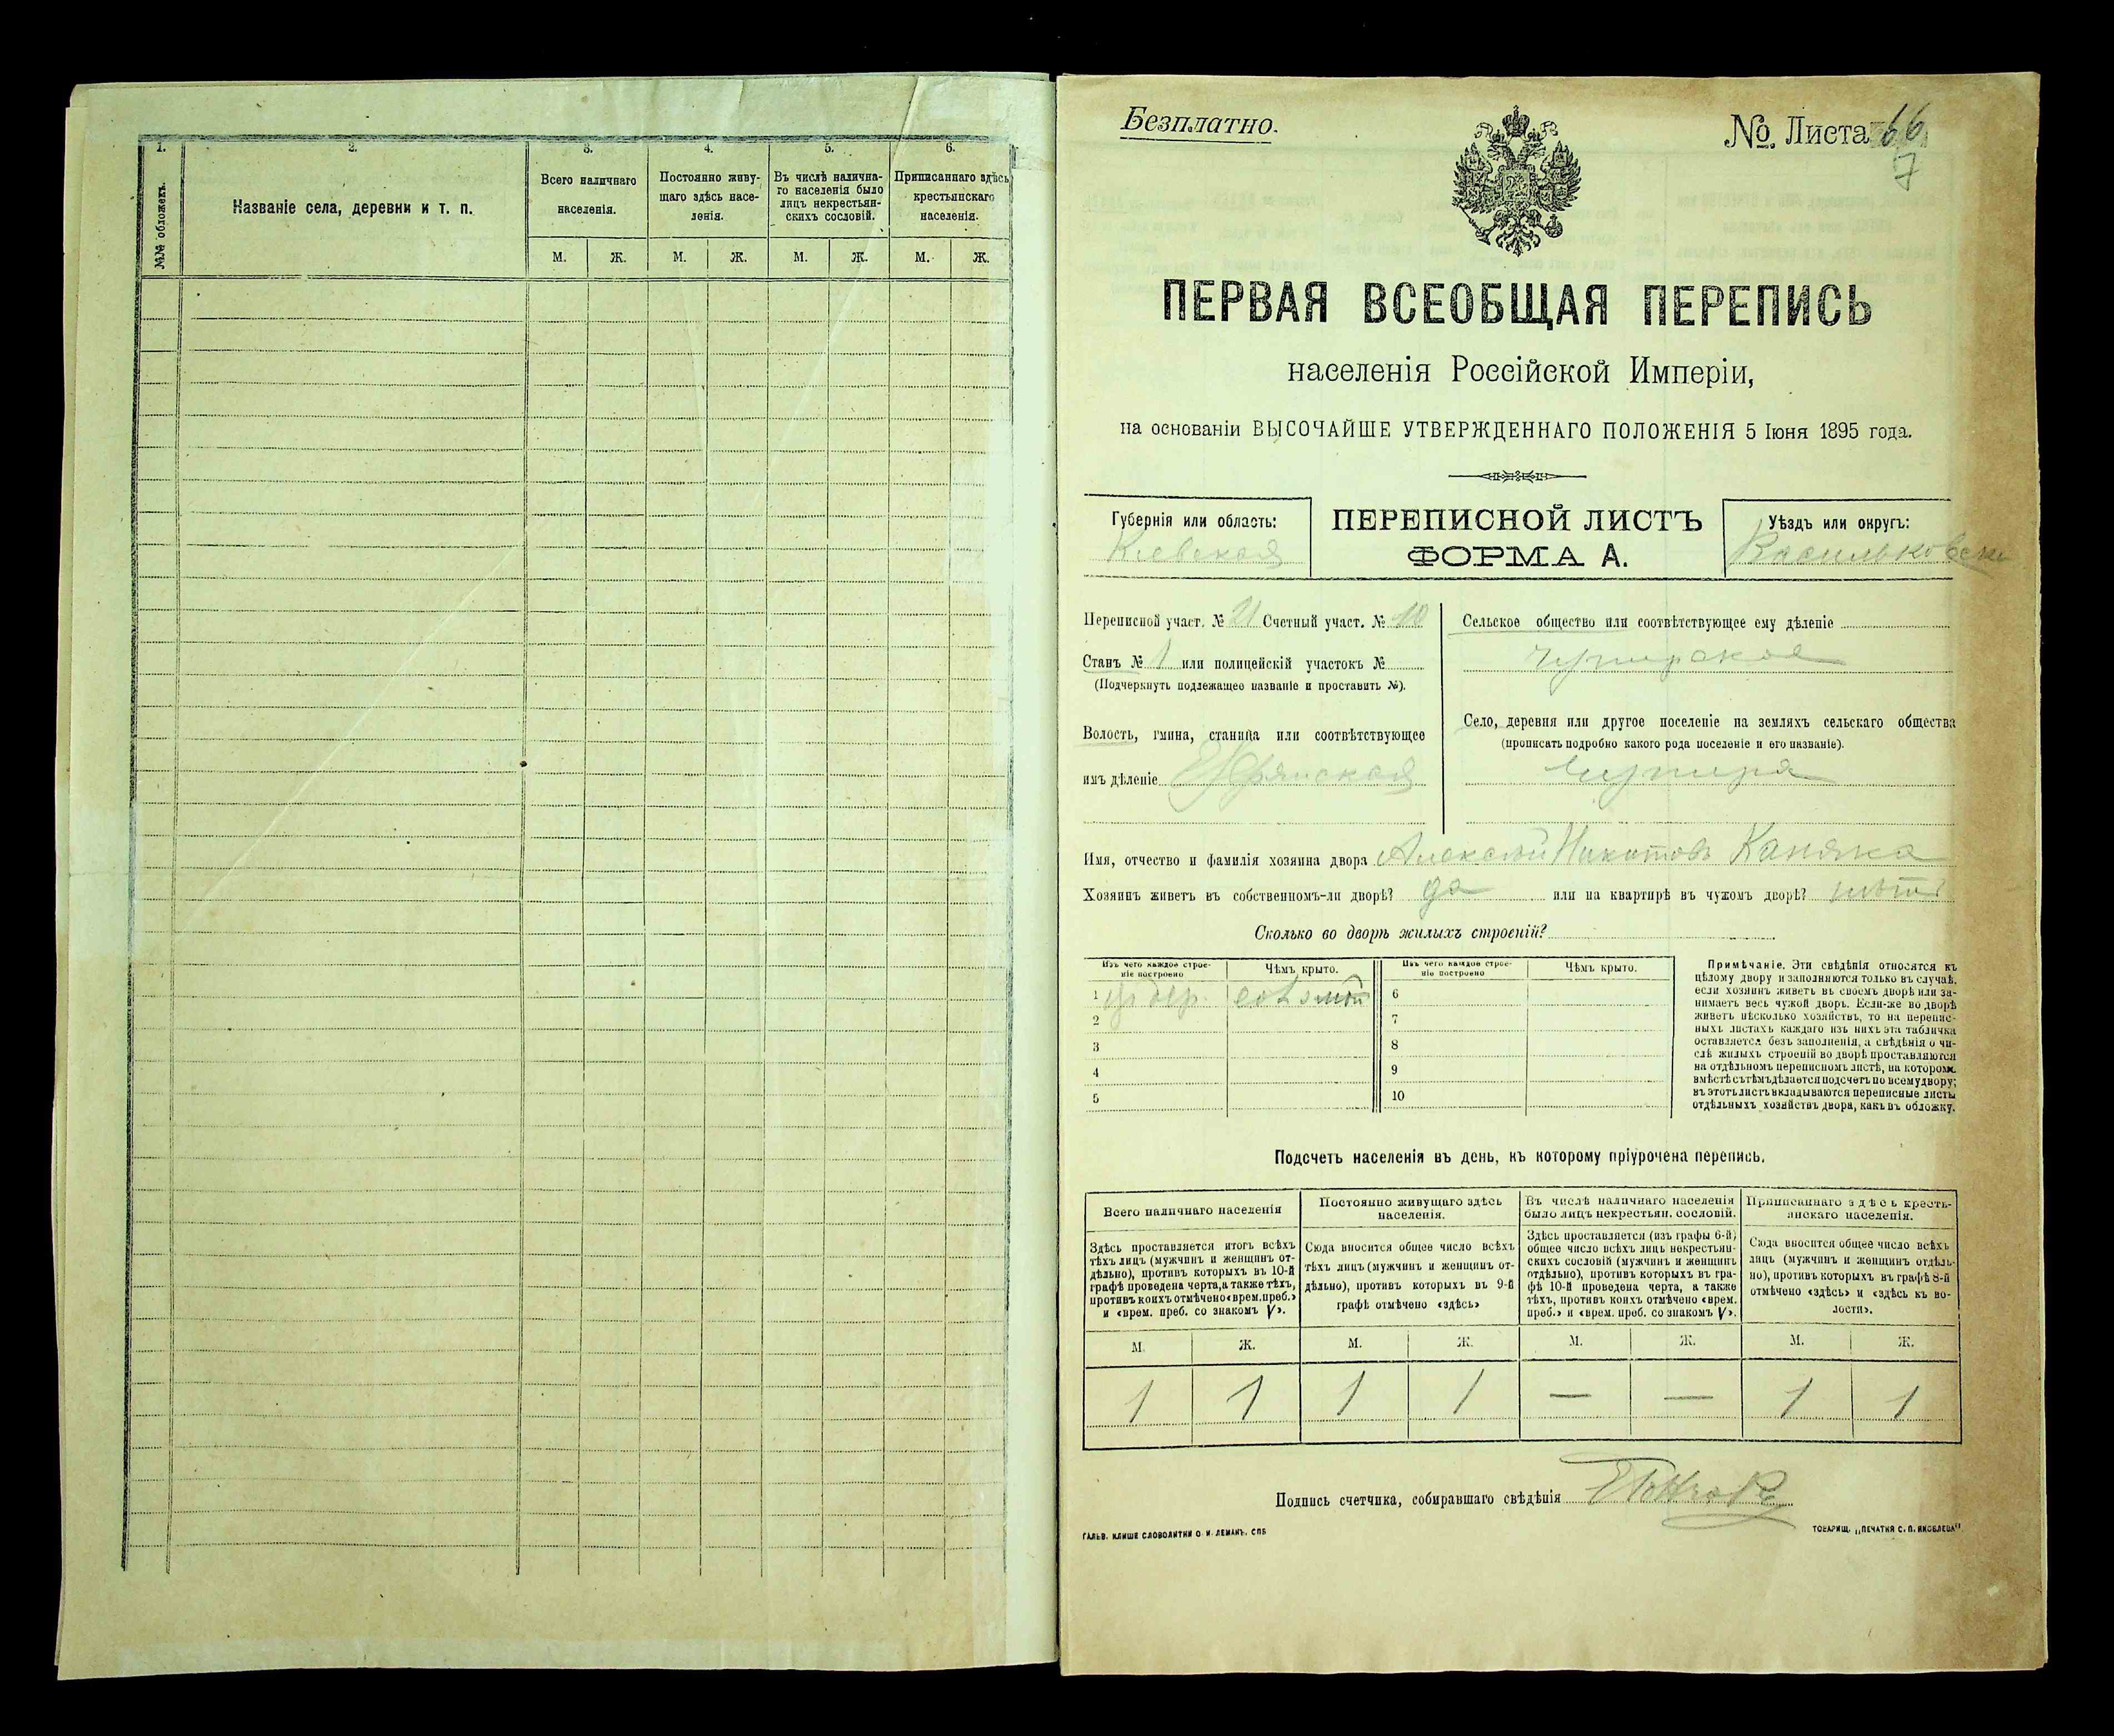 1.
2.
3.
4.
5.
6.
№№ обложекъ.
Названіе села, деревни и т. п.
Всего наличнаго
населенія.
Постоянно живу-
щаго здѣсь насе-
ленія.
Въ числѣ налична-
го населенія было
лицъ некрестьян-
скихъ сословій.
Приписаннаго здѣсь
крестьянскаго
населенія.
М. Ж. М. Ж. М. Ж. М. Ж.
Безплатно.
№ Листа 66
7
ПЕРВАЯ ВСЕОБЩАЯ ПЕРЕПИСЬ
населенія Россійской Имперіи,
на основаніи ВЫСОЧАЙШЕ УТВЕРЖДЕННАГО ПОЛОЖЕНІЯ 5 Іюня 1895 года.
Губернія или область:
Кіевская
ПЕРЕПИСНОЙ ЛИСТЪ
ФОРМА А.
Уѣздъ или округъ:
Васильковскі
Переписной участ. № 21 Счетный участ. № 10
Станъ № 1 или полицейскій участокъ №
(Подчеркнуть подлежащее названіе и проставить №).
Волость, гмина, станица или соотвѣтствующее
имъ дѣленіе
Сельское общество или соотвѣтствующее ему дѣленіе
Чупирское
Село, деревня или другое поселеніе на земляхъ сельскаго общества
(прописать подробно какого рода поселеніе и его названіе).
Чупира
Имя, отчество и фамилія хозяина двора Алексѣй Никитовъ Каняка
Хозяинъ живетъ въ собственномъ-ли дворѣ? да или на квартирѣ въ чужомъ дворѣ? нѣтъ
Сколько во дворѣ жилыхъ строеній?
Изъ чего каждое строе-
ніе построено
Чѣмъ крыто.
Изъ чего каждое строе-
ніе построено
Чѣмъ крыто.
1 изъ дер. соломой 6
2 7
3 8
4 9
5 10
Примѣчаніе. Эти свѣдѣнія относятся къ
цѣлому двору и заполняются только въ случаѣ,
если хозяинъ живетъ въ своемъ дворѣ или за-
нимаетъ весь чужой дворъ. Если-же во дворѣ
живетъ нѣсколько хозяйствъ, то на перепис-
ныхъ листахъ каждаго изъ нихъ эта табличка
оставляется безъ заполненія, а свѣдѣнія о чи-
слѣ жилыхъ строеній во дворѣ проставляются
на отдѣльномъ переписномъ листѣ, на которомъ
вмѣстѣ съ тѣмъ дѣлается подсчетъ по всему двору;
въ этотъ листъ вкладываются переписные листы
отдѣльныхъ хозяйствъ двора, какъ въ обложку.
Подсчетъ населенія въ день, къ которому пріурочена перепись.
Всего наличнаго населенія
Постоянно живущаго здѣсь
населенія.
Въ числѣ наличнаго населенія
было лицъ некрестьян. сословій.
Приписаннаго здѣсь кресть-
янскаго населенія.
Здѣсь проставляется итогъ всѣхъ
тѣхъ лицъ (мужчинъ и женщинъ от-
дѣльно), противъ которыхъ въ 10-й
графѣ проведена черта, а также тѣхъ,
противъ коихъ отмѣчено «врем. преб.»
и «врем. преб. со знакомъ V».
Сюда вносится общее число всѣхъ
тѣхъ лицъ (мужчинъ и женщинъ от-
дѣльно), противъ которыхъ въ 9-й
графѣ отмѣчено «здѣсь»
Здѣсь проставляется (изъ графы 6-й)
общее число всѣхъ лицъ некрестьян-
скихъ сословій (мужчинъ и женщинъ
отдѣльно), противъ которыхъ въ гра-
фѣ 10-й проведена черта, а также
тѣхъ, противъ коихъ отмѣчено «врем.
преб.» и «врем. преб. со знакомъ V».
Сюда вносится общее число всѣхъ
лицъ (мужчинъ и женщинъ отдѣль-
но), противъ которыхъ въ графѣ 8-й
отмѣчено «здѣсь» и «здѣсь къ во-
лости».
М. Ж. М. Ж. М. Ж. М. Ж.
1 1 1 1 — — 1 1
Подпись счетчика, собиравшаго свѣдѣнія
ГАЛЬВ. КЛИШЕ СЛОВОЛИТНИ О. И. ЛЕМАНЪ. СПБ
ТОВАРИЩ. „ПЕЧАТНЯ С. П. ЯКОВЛЕВА“